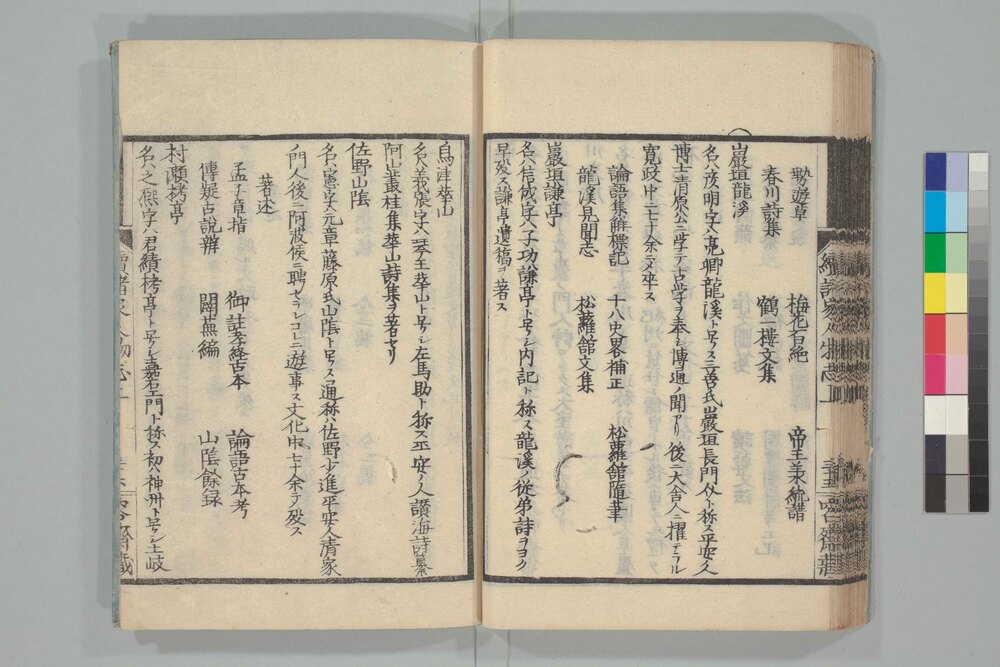 遊草　梅花百絶　帝王承統譜
春川詩集　鶴樓文集
巖垣龍溪
名ハ彦明字ハ亮卿龍溪ト号ス三善氏巖垣長門介ト称ス平安ノ人
博士清原公ニ学テ古学ヲ奉シ博通ノ聞アリ後ニ大舎人ニ擢テラル
寛政中ニ七十余ニメ卒ス
論語集解標記　十八史畧補正　松蘿館隨筆
龍溪見聞志　松蘿館文集
巖垣謙亭
名ハ信成字ハ子功謙亭ト号シ内記ト称ス龍溪ノ従弟詩ヲヨク
早殁ス謙亭遺稿ヲ著ス
烏津華山
名ハ義張字ハ琴王華山ト号シ左馬助ト称ス平安ノ人讃海詩藁
阿山叢桂集華山詩集ヲ著セリ
佐野山陰
名ハ憲字ハ元章藤原氏山陰ト号ス通称ハ佐野少進平安人清家
ノ門人後ニ阿波侯ニ聘セラレコレニ遊事ス文化中七十余テ殁ス
著述
孟子章指　御註孝経古本　論語古本考
傳疑古説辨　闢蕪編　山陰餘録
村瀬栲亭
名ハ之熈字ハ君績栲亭ト号シ嘉右エ門ト称ス初ハ神州ト号シ土岐